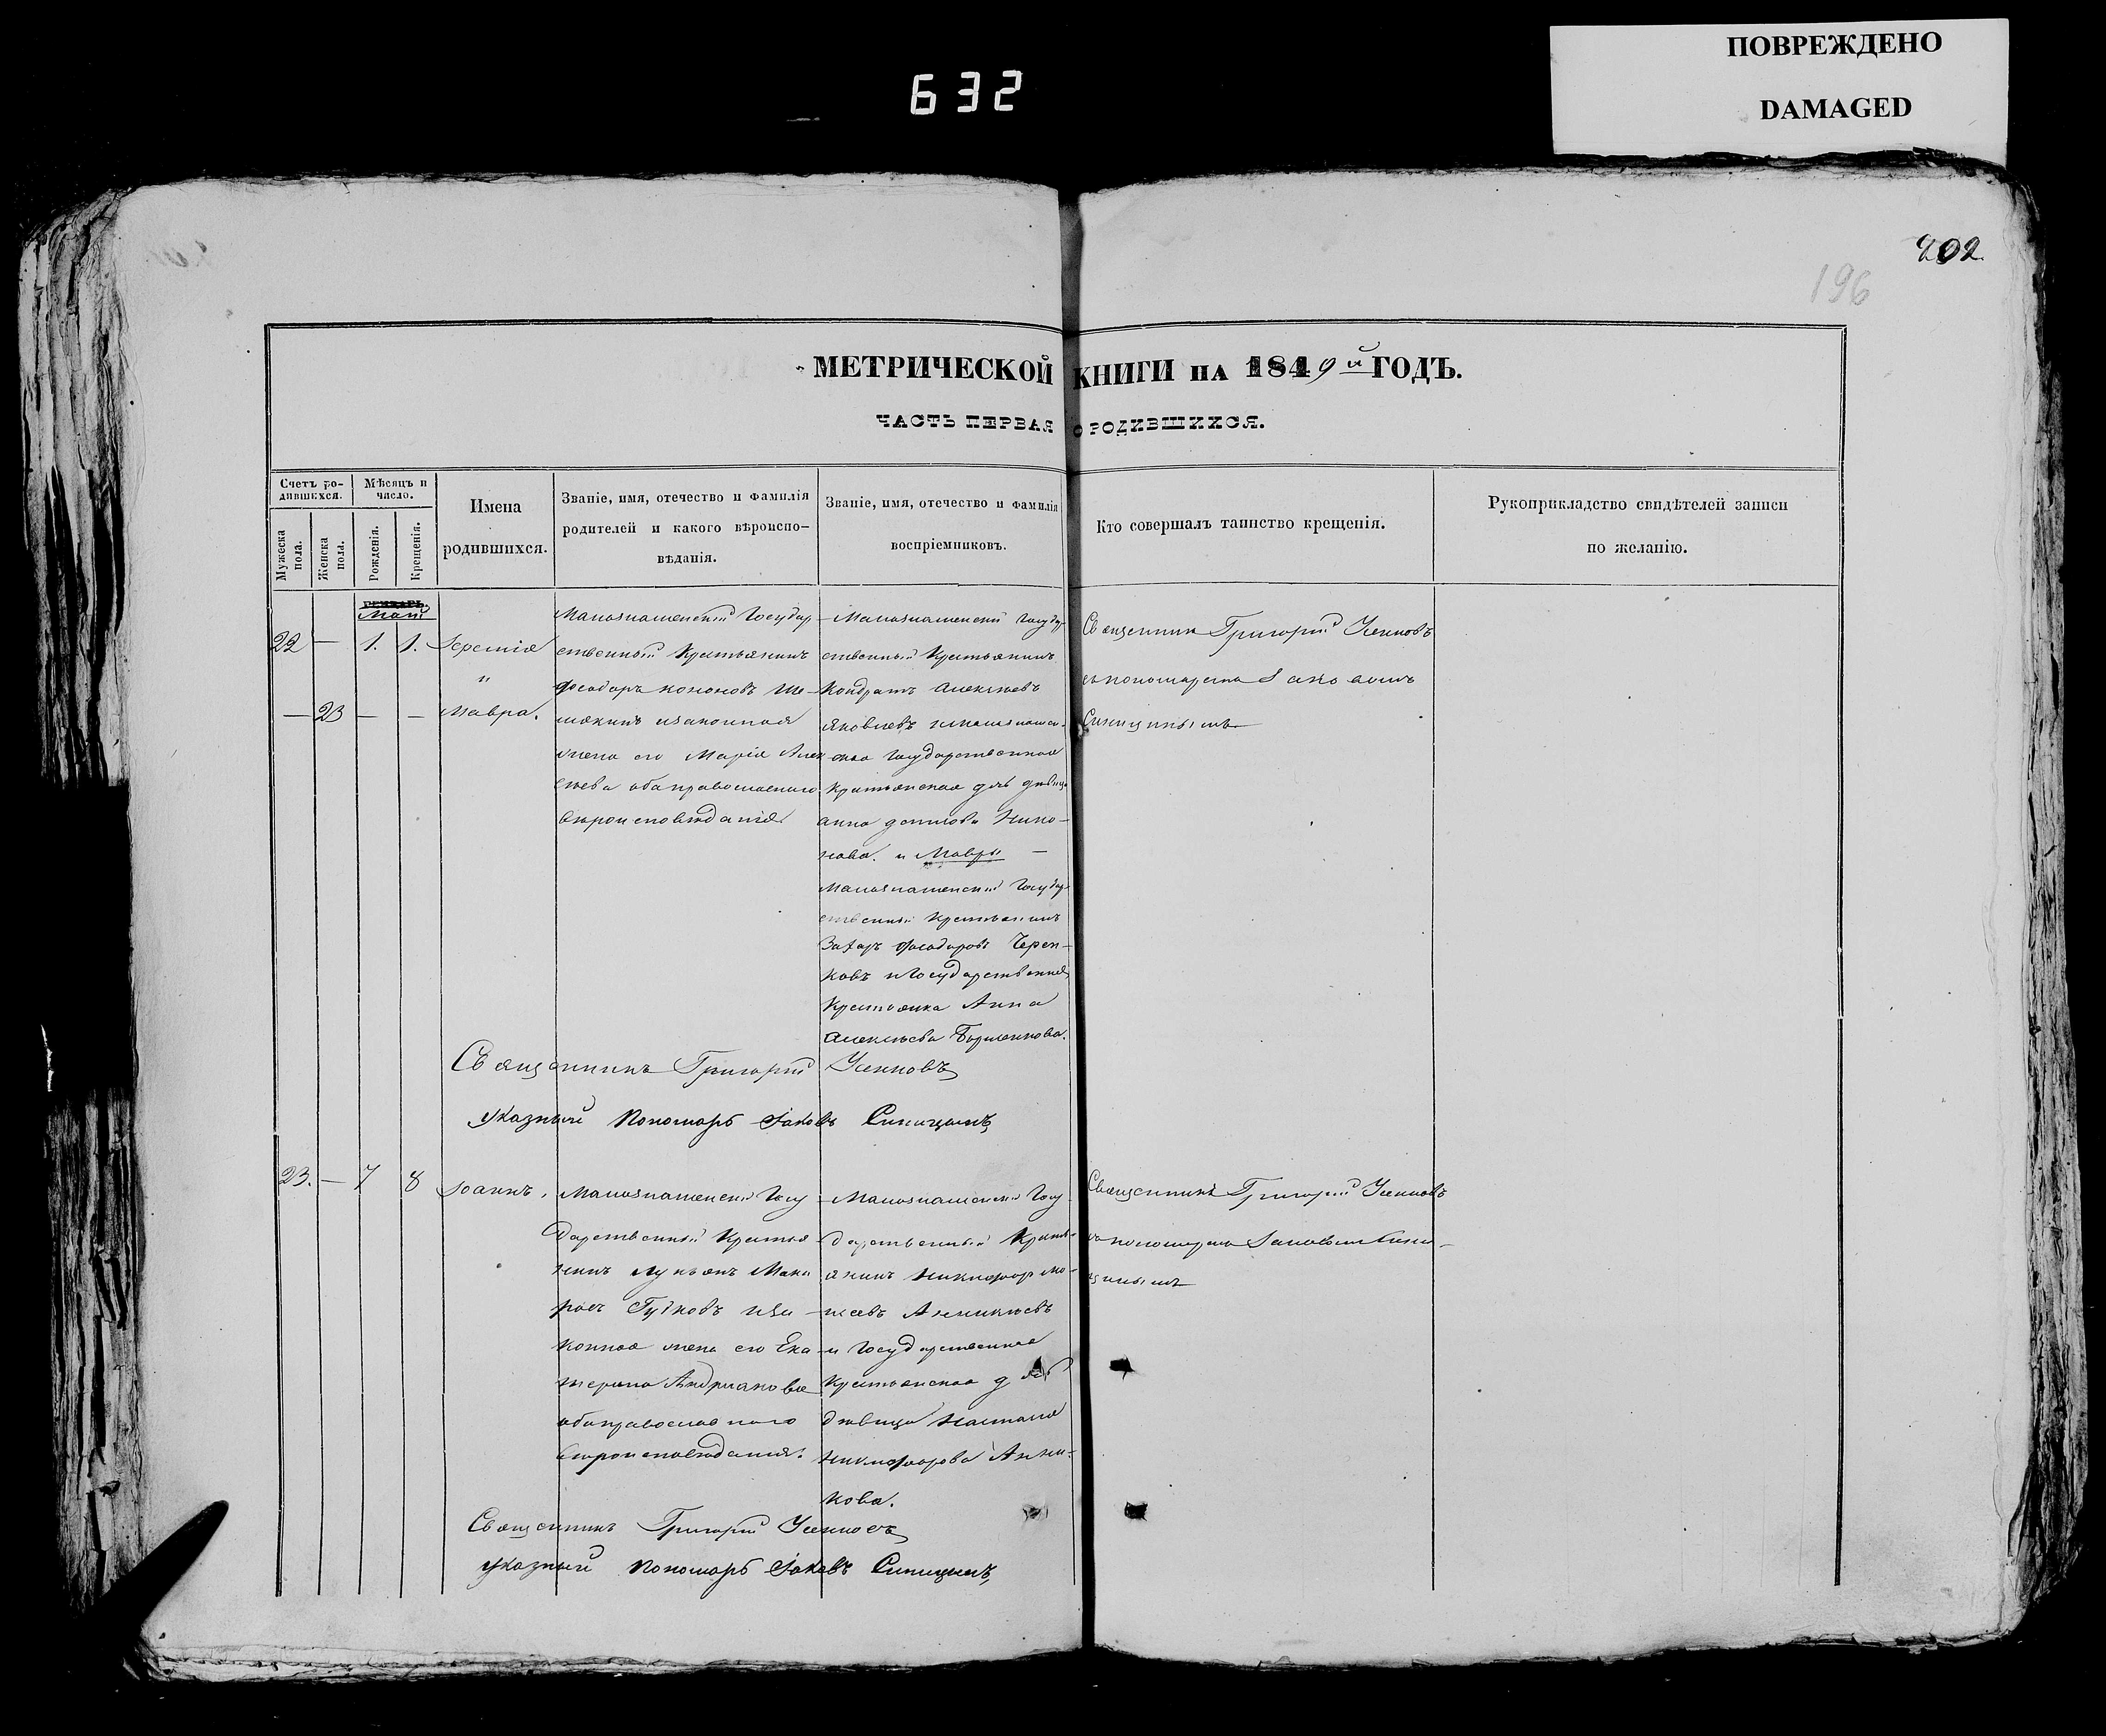 ПОВРЕЖДЕНО
DAMAGED
632
202
196
МЕТРИЧЕСКОЙ КНИГИ НА 1849й ГОДЪ.
ЧАСТЬ ПЕРВАЯ О РОДИВШИХСЯ.
Счетъ ро-
дившихся.
Мужеска
пола.
Женска
пола.
Мѣсяцъ и
число.
Рожденія.
Крещенія.
Имена
родившихся.
Званіе, имя, отечество и фамилія
родителей и какого вѣроиспо-
вѣданія.
Званіе, имя, отечество и фамилія
воспріемниковъ.
Кто совершалъ таинство крещенія.
Рукоприкладство свидѣтелей записи
по желанію.
Май
22 — 1. 1. Іеремія
и
— 23 — — Мавра.
Малознаменскій Государ
ственный Крестьянинъ
Феодоръ Кононовъ Ше-
мякинъ изаконная
жена его Марія Алек
сѣева обаправославнаго
вѣроисповѣданія
Малознаменскій Госуда-
рственный Крестьянинъ
Кондратъ Алексѣевъ
Яковлевъ ималознамен-
ская Государственная
Крестьянская дочь дѣвица
Анна Нико-
нова. и Мавры —
Малознаменскій Государ-
ственный Крестьянинъ
Захаръ Феодоровъ Череп-
ковъ иГосударственная
Крестьянка Анна
Алексѣева
Священникъ Григорій Усенковъ
съпономаремъ Іаковомъ
Синицынымъ
Священникъ Григорій Усенковъ
Указный Пономарь Іаковъ Синицынъ
23. — 7 8 Іоаннъ.
Малознаменскій Госу
дарственный Крестья
нинъ Лукьянъ Мака
ровъ Гутковъ иза-
конная жена его Ека
терина Андріанова
обаправославнаго
вѣроисповѣданія.
Малознаменскій Госу-
дарственный Кресть-
янинъ Никифоръ Мо-
исеевъ Анникѣевъ
и Государственная
Крестьянская дочь
дѣвица
Никифорова Анни-
кова.
Священникъ Григорій Усенковъ
съпономаремъ Іаковомъ Сини-
цынымъ
Священникъ Григорій Усенковъ
Указный Пономарь Іаковъ Синицынъ